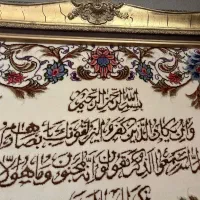 بسم الله الرحمن الرحيم
وان يكاد الذين كفروا ليزلقونك بابصارهم
لما سمعوا الذكر ويقولون انه لمجنون وما هو الا